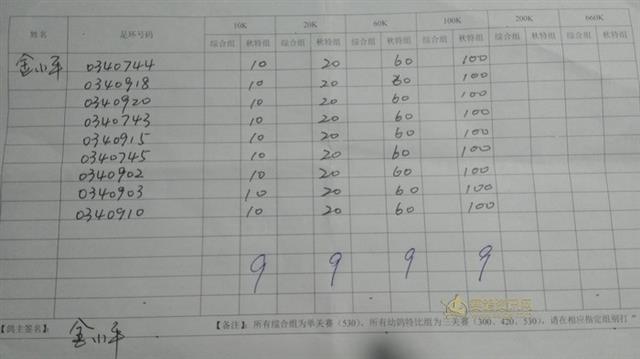 姓名 足环号码 10K 20K 60K 100K 200K 660K
综合组 秋特组 综合组 秋特组 综合组 秋特组 综合组 秋特组 综合组 秋特组 综合组 秋特组
金小平 0340744 10 20 60 100
0340918 10 20 60 100
0340920 10 20 60 100
0340743 10 20 60 100
0340915 10 20 60 100
0340745 10 20 60 100
0340902 10 20 60 100
0340903 10 20 60 100
0340910 10 20 60 100
9 9 9 9
【鸽主签名】 金小平 【备注】：所有综合组为单关赛（530）、所有幼鸽特比组为三关赛（300、420、530），请在相应指定组别打"